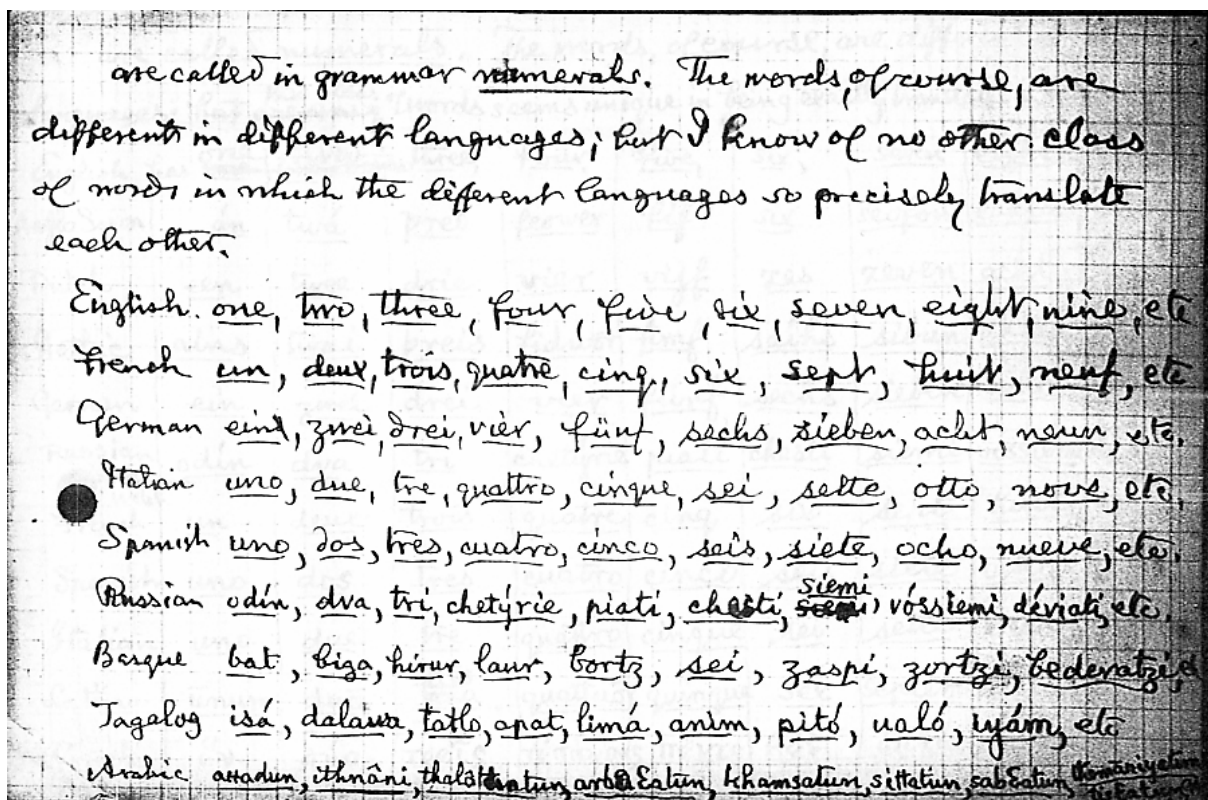 are called in grammar numerals. The words, of course, are
different in different languages; but I know of no other class
of words in which the different languages so precisely translate
each other.
English one, two, three, four, five, six, seven, eight, nine, etc
French un, deux, trois, quatre, cinq, six, sept, huit, neuf, etc
German eins, zwei, drei, vier, fünf, sechs, sieben, acht, neun, etc.
Italian uno, due, tre, quattro, cinque, sei, sette, otto, nove, etc.
Spanish uno, dos, tres, cuatro, cinco, seis, siete, ocho, nueve, etc.
siemi
Russian odín, dva, tri, chetýrie, piati, chesti, vóssiemi, déviati, etc.
Basque bat, biga, hirur, laur, bortz, sei, zaspi, zortzi, bederatzi, &
Tagalog isá, dalawa, tatlo, apat, limá, anim, pitó, ualó, iyám, etc
Arabic ithnâni, khamsatun, sittatun,